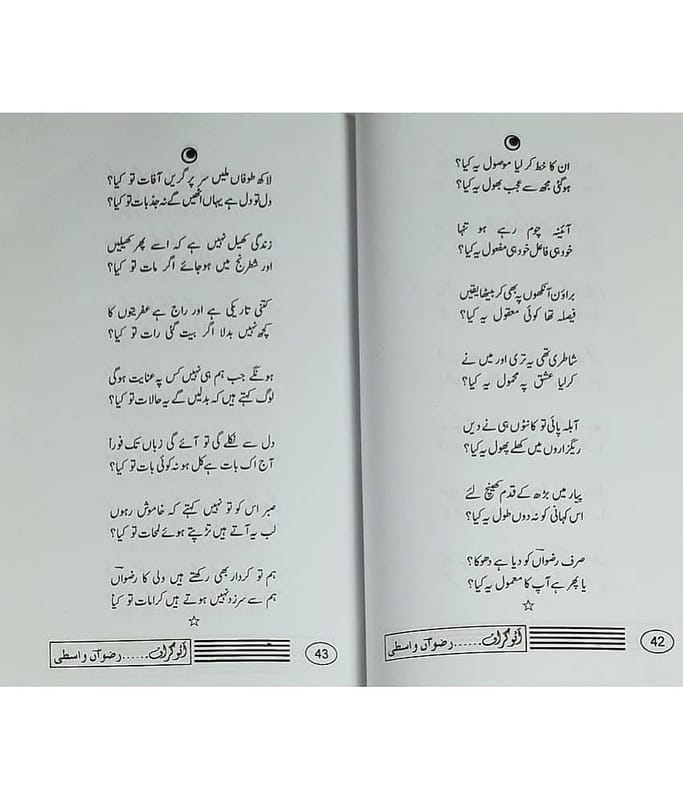 ان کا خط کر لیا موصول یہ کیا؟
ہو گئی مجھ سے عجب بھول یہ کیا؟
آئینہ چوم رہے ہو تنہا
خود ہی فاعل خود ہی مفعول یہ کیا؟
براؤن آنکھوں پہ بھی کر بیٹھا یقیں
فیصلہ تھا کوئی معقول یہ کیا؟
شاطری تھی یہ تری اور میں نے
کر لیا عشق پہ محمول یہ کیا؟
آبلہ پائی تو کانٹوں ہی نے دیں
ریگزاروں میں کھلے پھول یہ کیا؟
پیار میں بڑھ کے قدم کھینچ لئے
اس کہانی کو نہ دوں طول یہ کیا؟
صرف رضواںؔ کو دیا ہے دھوکا؟
یا پھر ہے آپ کا معمول یہ کیا؟
آٹو گراف......رضوان واسطی 42
لاکھ طوفاں ملیں سر پر گریں آفات تو کیا؟
دل تو دل ہے یہاں اٹھیں گے نہ جذبات تو کیا؟
زندگی کھیل نہیں ہے کہ اسے پھر کھیلیں
اور شطرنج میں ہو جائے اگر مات تو کیا؟
کتنی تاریکی ہے اور راج ہے عفریتوں کا
کچھ نہیں بدلا اگر بیت گئی رات تو کیا؟
ہونگے جب ہم ہی نہیں کس پہ عنایت ہوگی
لوگ کہتے ہیں کہ بدلیں گے یہ حالات تو کیا؟
دل سے نکلے گی تو آئے گی زباں تک فوراً
آج اک بات ہے کل ہو نہ کوئی بات تو کیا؟
صبر اس کو تو نہیں کہتے کہ خاموش رہوں
لب پہ آتے ہیں تڑپتے ہوئے لمحات تو کیا؟
ہم تو کردار بھی رکھتے ہیں ولی کا رضواںؔ
ہم سے سرزد نہیں ہوتے ہیں کرامات تو کیا؟
آٹو گراف......رضوان واسطی 43